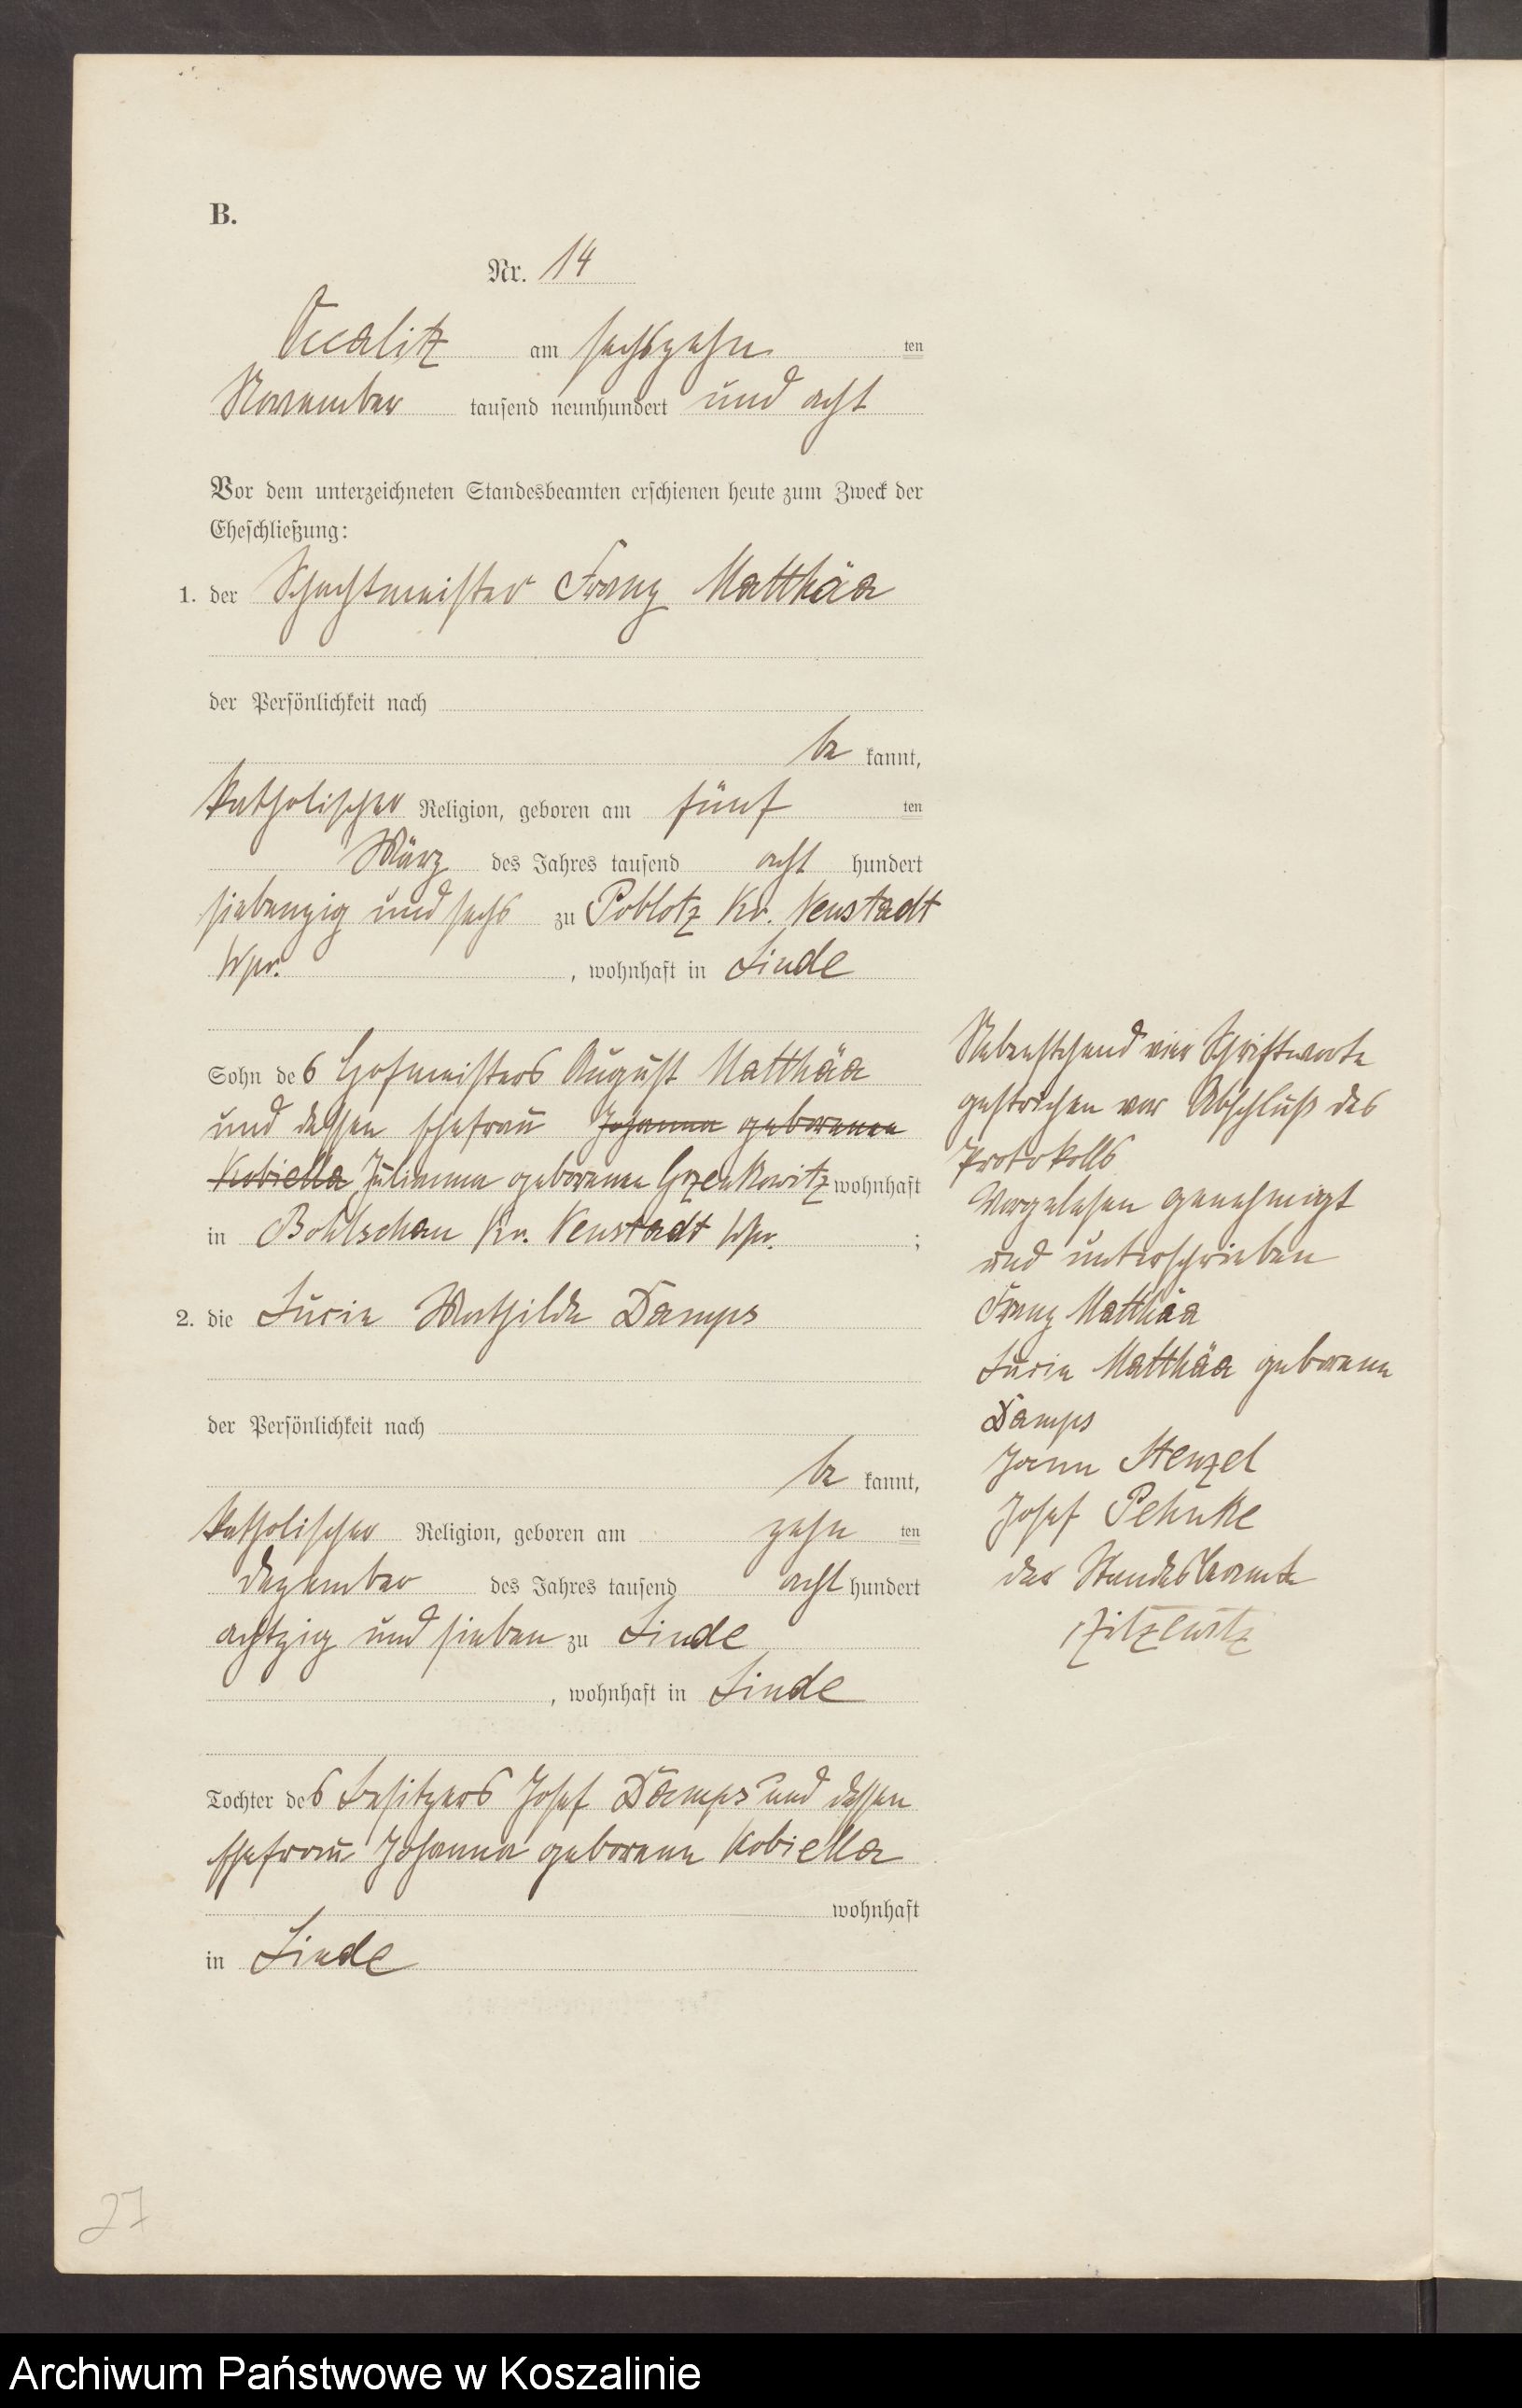 B.
Nr. 14
am sechszehn ten
November tausend neunhundert und acht
Vor dem unterzeichneten Standesbeamten erschienen heute zum Zweck der
Eheschließung:
1. der Schachtmeister Franz Matthäa
der Persönlichkeit nach
be kannt,
katholischer Religion, geboren am fünf ten
März des Jahres tausend acht hundert
siebenzig und sechs zu Poblotz Kr. Neustadt
Wpr. , wohnhaft in Linde
Sohn des Hofmeisters August Matthäa
und dessen Ehefrau Johanna geborenen
Kobiella Julianna geborenen Grzenkowitz wohnhaft
in Bohlschau Kr. Neustadt Wpr. ;
2. die Lucie Mathilde Damps
der Persönlichkeit nach
be kannt,
katholischer Religion, geboren am zehn ten
Dezember des Jahres tausend acht hundert
achtzig und sieben zu Linde
, wohnhaft in Linde
Tochter des Besitzers Josef Damps und dessen
Ehefrau Johanna geborene Kobiella
wohnhaft
in Linde
Nebenstehend vier Schriftworte
gestrichen vor Abschluß des
Protokolls
Vorgelesen genehmigt
und unterschrieben
Franz Matthäa
Lucie Matthäa geborene
Damps
Stenzel
Josef Pehnke
der Standesbeamte
Zitzewitz
27
Archiwum Państwowe w Koszalinie